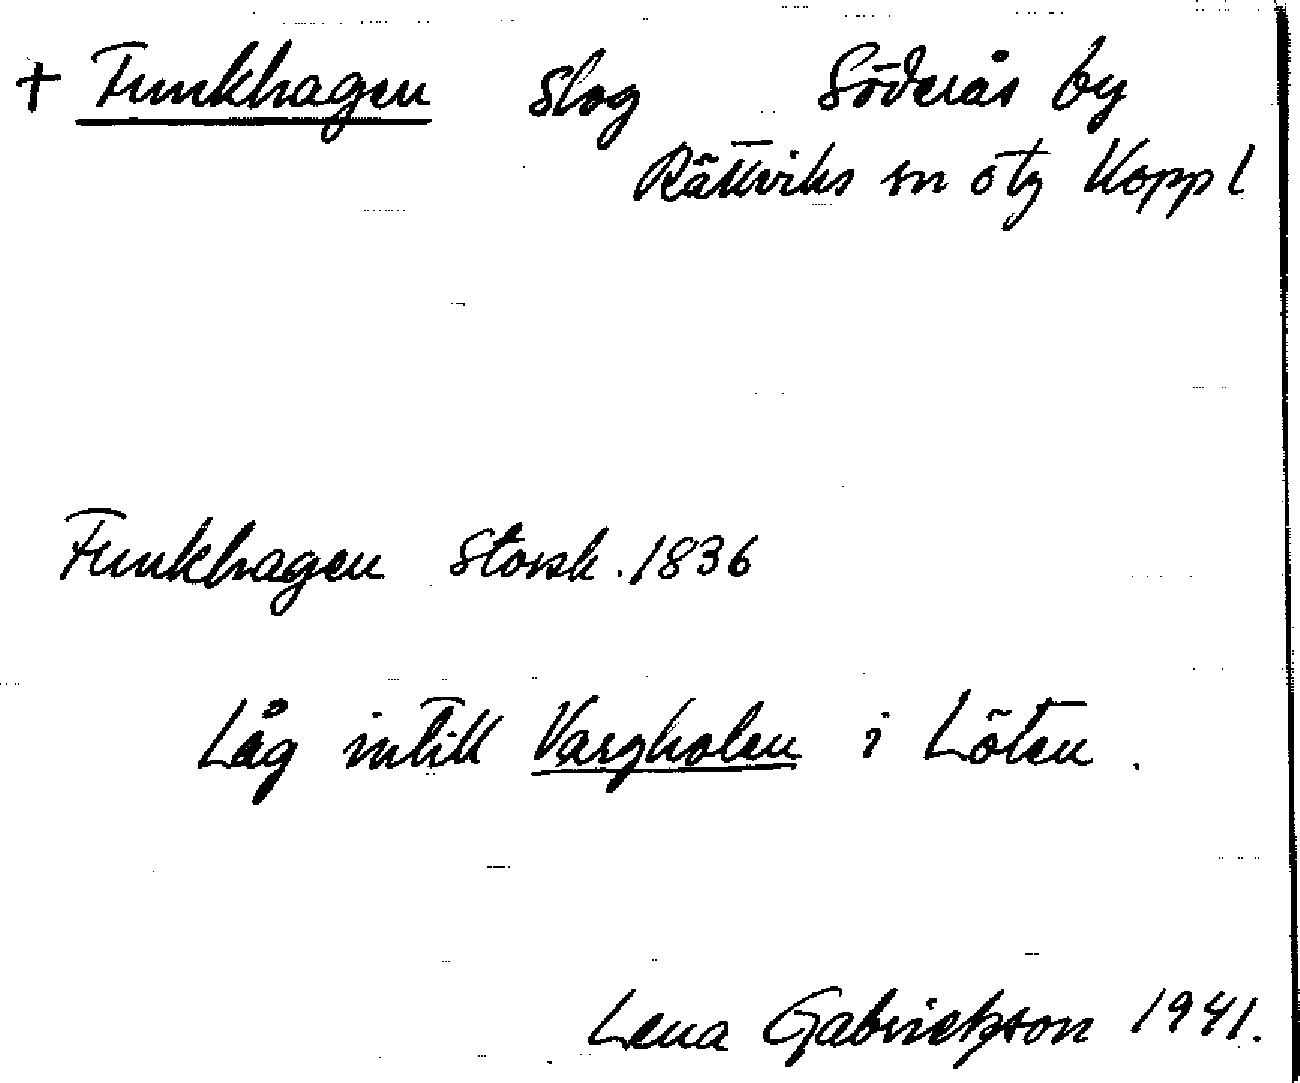 + Funkhagen slog Söderås by
Rättviks sn o tg Kopp l
Funkhagen Storsk. 1836
Låg intill Vargholen i Löten.
Lena Gabrielsson 1941.